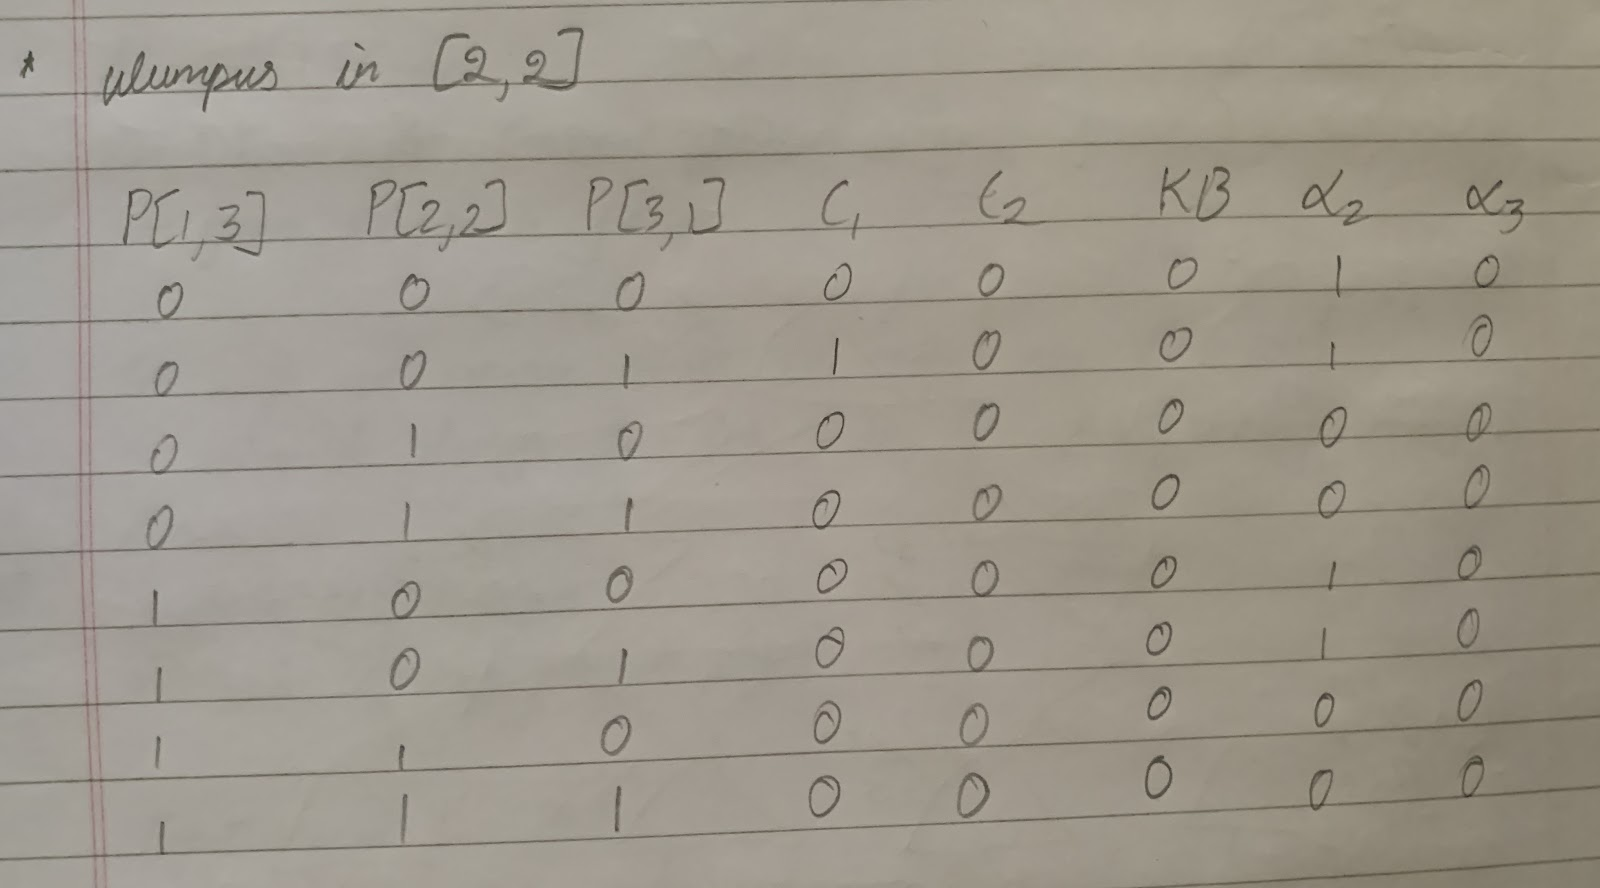 * wumpus in [2,2]
P[1,3] P[2,2] P[3,1] C₁ C₂ KB α₂ α₃
0 0 0 0 0 0 1 0
0 0 1 1 0 0 1 0
0 1 0 0 0 0 0 0
0 1 1 0 0 0 0 0
1 0 0 0 0 0 1 0
1 0 1 0 0 0 1 0
1 1 0 0 0 0 0 0
1 1 1 0 0 0 0 0